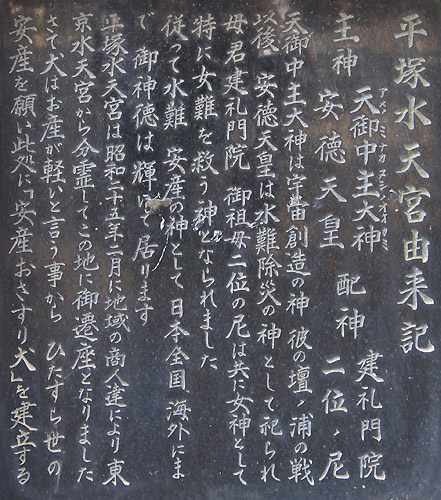 平塚水天宮由来記
主神 天御中主大神 配神 建礼門院
アメノミナカヌシノオオカミ
安徳天皇 二位ノ尼
天御中主大神は宇宙創造の神 彼の壇ノ浦の戦
以後 安徳天皇は水難除災の神として祀られ
母君建礼門院 御祖母二位の尼は共に女神として
特に女難を救う神となられました
従って水難 安産の神として日本全国 海外にま
で 御神徳は輝いて居ります
平塚水天宮は昭和二十五年二月に地域の商人達により東
京水天宮から分霊してこの地に御遷座となりました
さて犬はお産が軽いと言う事から ひたすら世の
安産を願い此処に「安産おさすり犬」を建立する